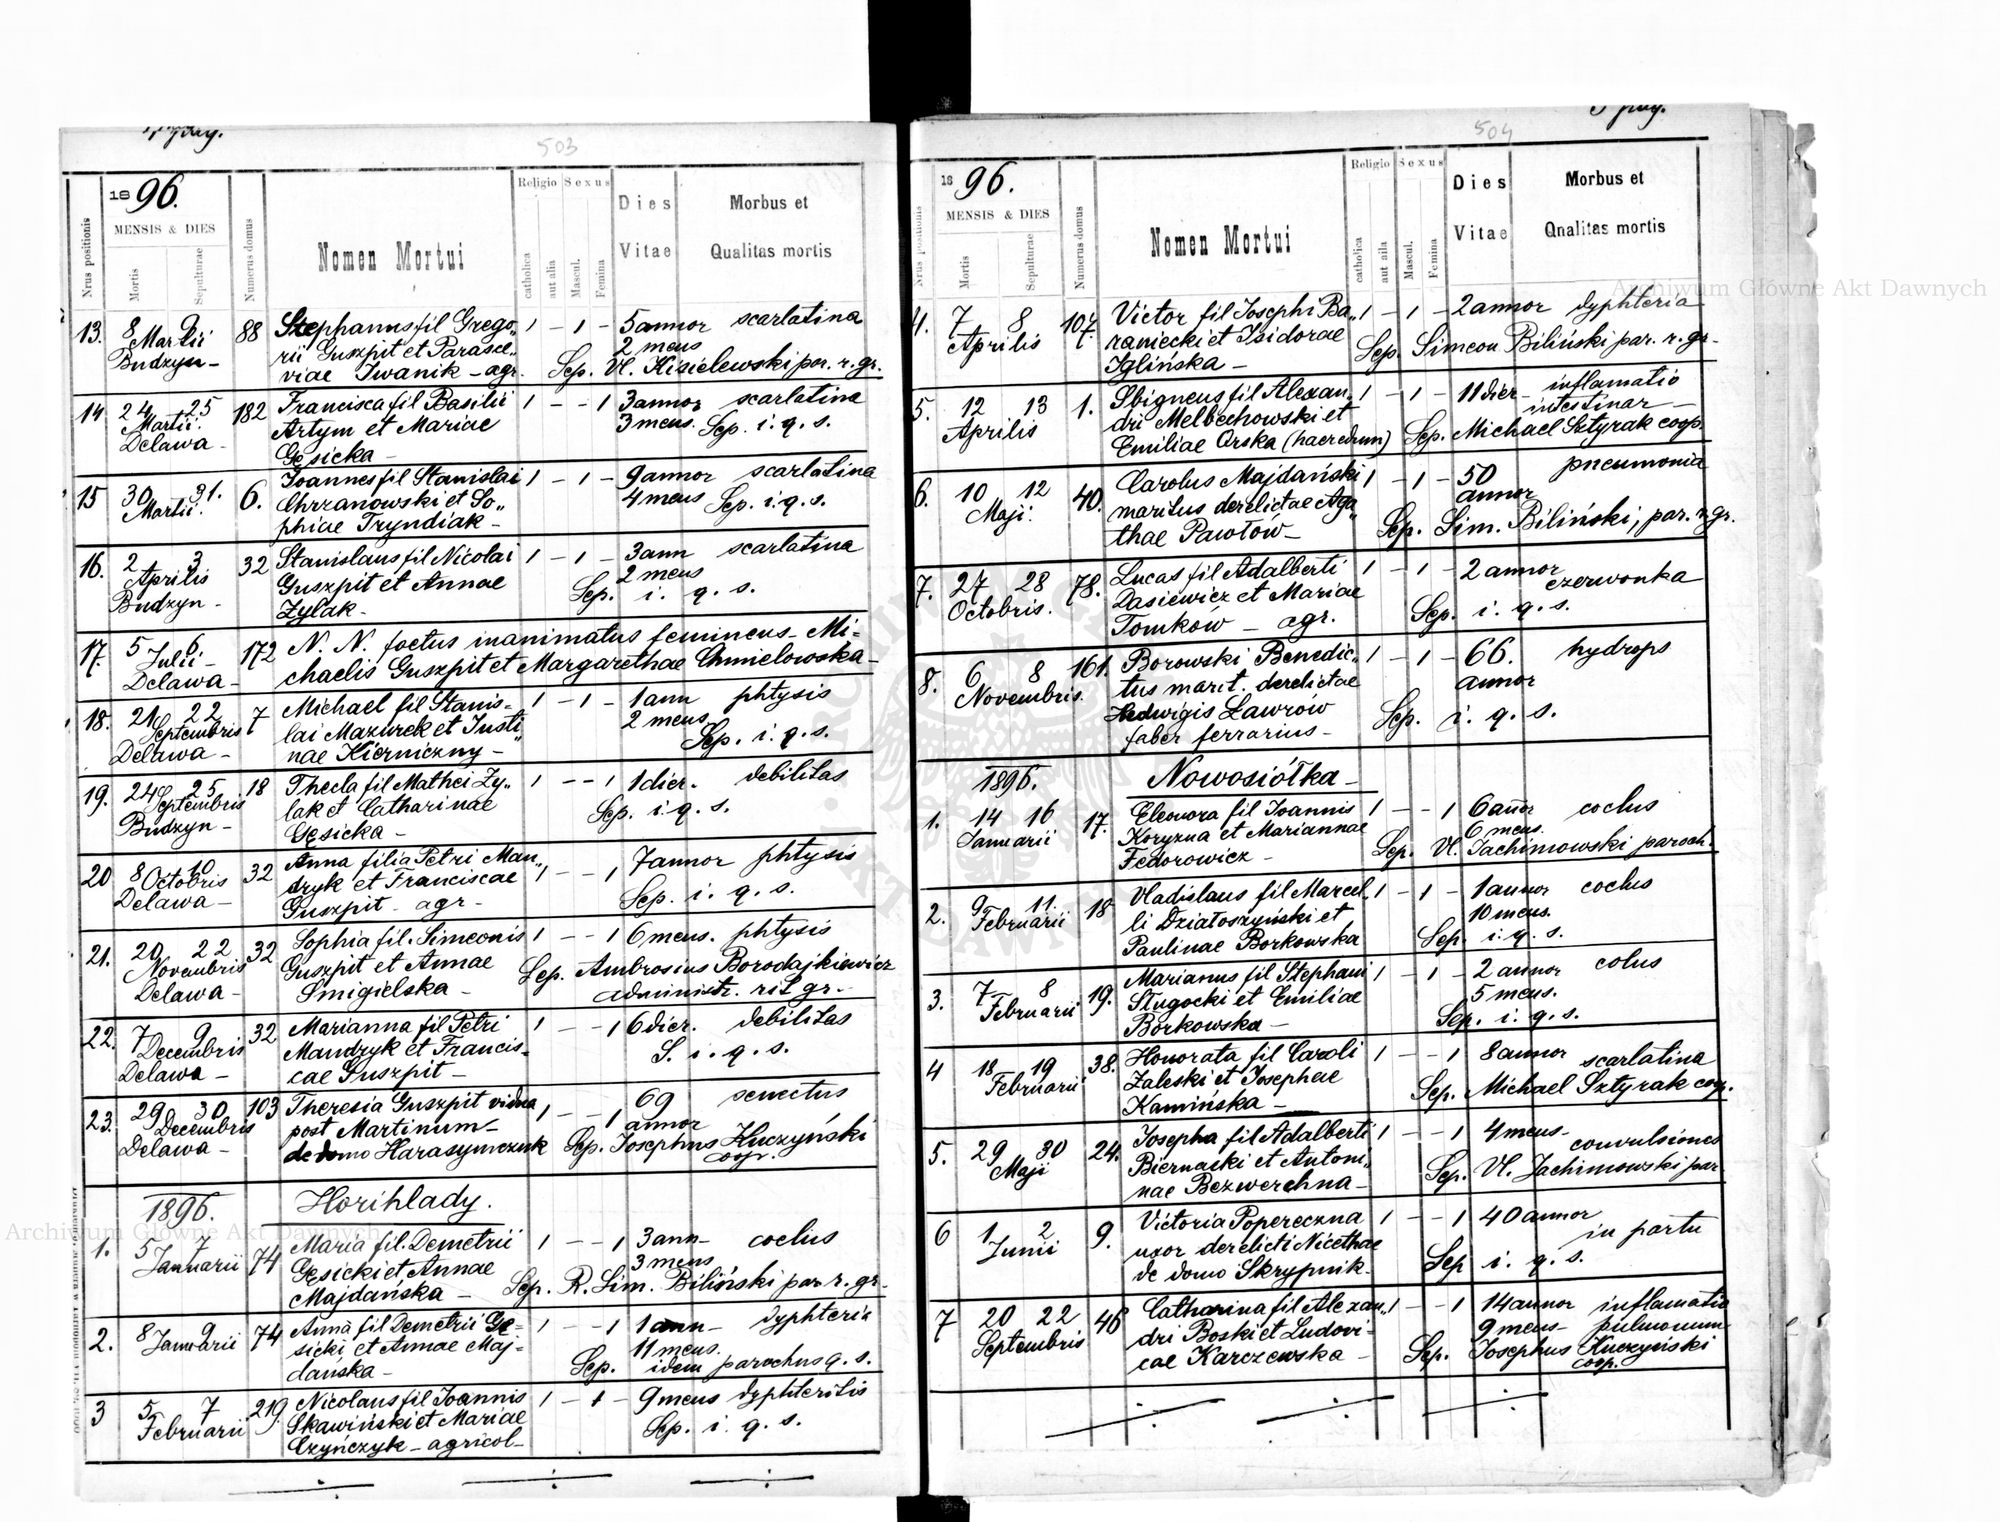 503
1896.
MENSIS & DIES
Nrus positionis
Mortis
Sepulturae
Numerus domus
Nomen Mortui
Religio
catholica
aut alia
Sexus
Mascul.
Femina
Dies
Vitae
Morbus et
Qualitas mortis
13. 8 9 88 Stephanus fil Grego„ 1 – 1 – 5 annor scarlatina
Martii rii Guszpit et Parasce„ 2 mens
Budzyn – viae Iwanik – agr. Sep. Vl. Kisielewski par. r. gr.
14 24 25 182 Francisca fil Basilii 1 – – 1 3 annor scarlatina
Martii. Artym et Mariae 3 mens. Sep. i. q. s.
Delawa – Gęsicka –
15 30 31. 6. Joannes fil Stanislai 1 – 1 – 9 annor scarlatina
Martii. Chrzanowski et So„ 4 mens Sep. i. q. s.
phiae Tryndiak –
16. 2 3 32 Stanislaus fil Nicolai 1 – 1 – 3 ann scarlatina
Aprilis Guszpit et Annae 2 mens
Budzyn – Zylak – Sep. i. q. s.
17. 5 6 172 N. N. foetus inanimatus femineus – Mi=
Julii – chaelis Guszpit et Margarethae Chmielowska –
Delawa –
18. 21 22 7 Michael fil Stanis= 1 – 1 – 1 ann phtysis
Septembris lai Mazurek et Justi„ 2 mens
Delawa – nae Kierniczny – Sep. i. q. s.
19. 24 25 18 Thecla fil Mathei Zy„ 1 – – 1 1 dier. debilitas
Septembris lak et Catharinae Sep. i. q. s.
Budzyn – Gęsicka –
20 8 10 32 Anna filia Petri Man„ 1 – – 1 7 annor phtysis
Octobris dryk et Franciscae
Delawa – Guszpit – agr – Sep. i. q. s.
21. 20 22 32 Sophia fil. Simeonis 1 – – 1 6 mens. phtysis
Novembris Guszpit et Annae Sep. Ambrosius Borodajkiewicz
Delawa – Smigielska – administr. rit gr. –
22. 7 9 32 Marianna fil Petri 1 – – 1 6 dier. debilitas
Decembris Mandryk et Francis= S. i. q. s.
Delawa – cae Guszpit –
23. 29 30 103 Theresia Guszpit vidua 1 – – 1 69 senectus
Decembris post Martinum – annor
Delawa – de domo Harasymczuk Sep. Josephus Kuczyński
coop.
1896. Horihlady.
1. 5 7 74 Maria fil. Demetrii 1 – – 1 3 ann – coclus
Januarii Gęsicki et Annae 3 mens
Majdańska – Sep. R. Sim. Biliński par. r. gr –
2. 8 9 74 Anna fil Demetrii Gę= 1 – – 1 1 ann – dyphteria
Januarii sicki et Annae Maj= 11 mens.
dańska – Sep. idem parochus q. s.
3 5 7 219 Nicolaus fil Joannis 1 – 1 – 9 mens dyphteritis
Februarii Skawiński et Mariae Sep. i. q. s.
Czyńczyk – agricol –
504
1896.
MENSIS & DIES
Nrus positionis
Mortis
Sepulturae
Numerus domus
Nomen Mortui
Religio
catholica
aut alia
Sexus
Mascul.
Femina
Dies
Vitae
Morbus et
Qnalitas mortis
4. 7 8 107. Victor fil Josephi Ba„ 1 – 1 – 2 annor dyphteria
Aprilis raniecki et Isidorae Sep. Simeon Biliński par. r. gr –
Iglińska –
5. 12 13 1. Sbigneus fil Alexan„ 1 – 1 – 11 dier inflamatio
Aprilis dri Melbechowski et intestinar –
Emiliae Orska (haeredum) Sep. Michael Sztyrak coop.
6. 10 12 40. Carolus Majdański 1 – 1 – 50 pneumonia
Maji maritus derelictae Aga„ annor
thae Pawłów – Sep. Sim. Biliński, par. r. gr.
7. 27 28 78. Lucas fil Adalberti 1 – 1 – 2 annor
Octobris. Dasiewicz et Mariae czerwonka
Tomków – agr. Sep. i. q. s.
8. 6 8 161. Borowski Benedic„ 1 – 1 – 66. hydrops
Novembris. tus marit. derelictae annor
Hedwigis Ławrów Sep. i. q. s.
faber ferrarius –
1896. Nowosiółka –
1. 14 16 17. Eleonora fil Joannis 1 – – 1 6 anor coclus
Januarii Koryzna et Mariannae 6 mens.
Fedorowicz – Sep. Vl. Jachimowski paroch.
2. 9 11. 18 Vladislaus fil Marcel„ 1 – 1 – 1 annor coclus
Februarii li Działoszyński et 10 mens.
Paulinae Borkowska Sep. i. q. s.
3. 7 8 19. Marianus fil Stephani 1 – 1 – 2 annor colus
Februarii Sługocki et Emiliae 5 mens.
Borkowska – Sep. i. q. s.
4 18 19 38. Honorata fil Caroli 1 – – 1 8 annor scarlatina
Februarii Zaleski et Josephae Sep. Michael Sztyrak coop.
Kamińska –
5. 29 30 24. Josepha fil Adalberti 1 – – 1 4 mens – convulsiones
Maji Biernacki et Antoni„ Sep. Vl. Jachimowski par
nae Bezwerchna –
6 1 2 9. Victoria Popereczna 1 – – 1 40 annor
Junii uxor derelicti Nicethae in partu
de domo Skrypnik – Sep i. q. s.
7 20 22 46 Catharina fil Alexan„ 1 – – 1 14 annor inflamatio
Septembris dri Boski et Ludovi= 9 mens – pulmonum
cae Karczewska – Sep. Josephus Kuczyński
coop.
Archiwum Główne Akt Dawnych
Archiwum Główne Akt Dawnych